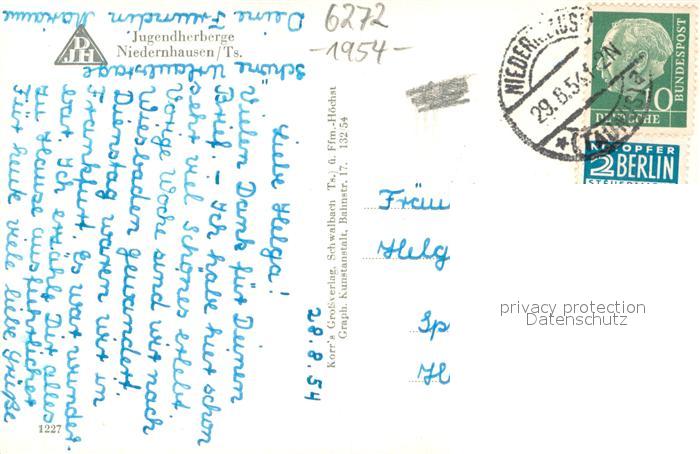 DJH
Jugendherberge
Niedernhausen/Ts.
6272
-1954-
28.8.54
Liebe Helga!
Vielen Dank für Deinen
Brief. - Ich habe hier schon
sehr viel Schönes erlebt.
Vorige Woche sind wir nach
Wiesbaden gewandert.
Dienstag waren wir in
Frankfurt. Es war wunder-
bar. Ich erzähle Dir alles
zu Hause ausführlicher.
Für heute viele liebe Grüße
schöne Urlaubstage
Deine Freundin
1227
Korr's Großverlag, Schwalbach Ts.) ü. Ffm.-Höchst
Graph. Kunstanstalt, Bahnstr. 17. 132 54
NIEDERNHAUS
29.8.54
(TAUNUS) a
10
DEUTSCHE
BUNDESPOST
NOTOPFER
2 BERLIN
STEUERMARKE
Fräu
Helg
Sp
H
privacy protection
Datenschutz